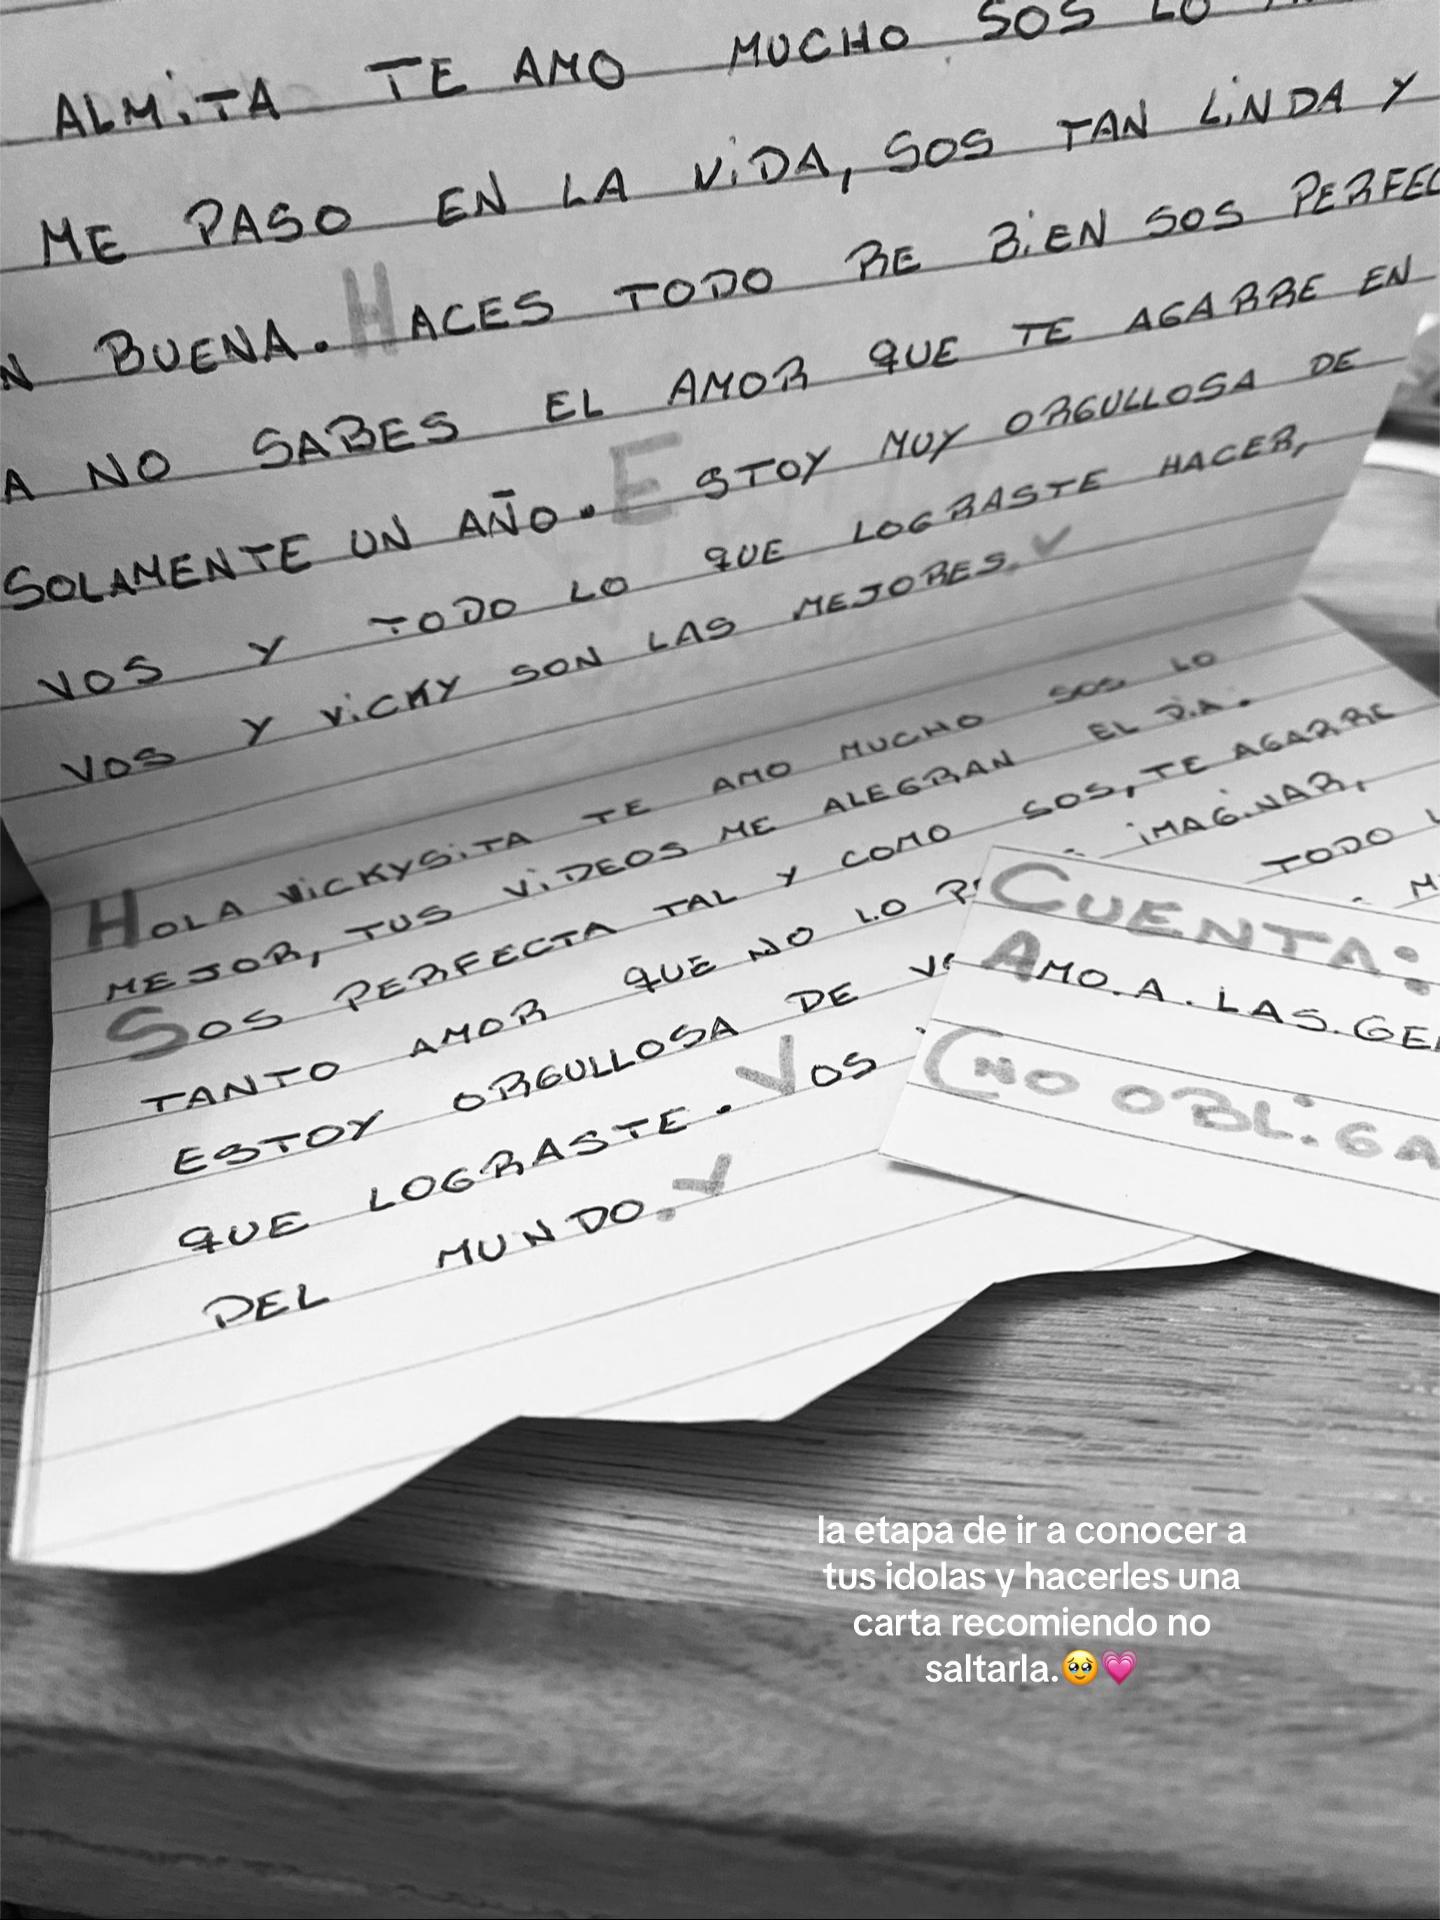 ALMITA TE AMO MUCHO SOS LO
ME PASO EN LA VIDA, SOS TAN LINDA Y
N BUENA. HACES TODO RE BIEN SOS PERFEC
A NO SABES EL AMOR QUE TE AGARRE EN
SOLAMENTE UN AÑO. ESTOY MUY ORGULLOSA DE
VOS Y TODO LO QUE LOGRASTE HACER,
VOS Y VICKY SON LAS MEJORES.
HOLA VICKYSITA TE AMO MUCHO SOS LO
MEJOR, TUS VIDEOS ME ALEGRAN EL DIA.
SOS PERFECTA TAL Y COMO SOS, TE AGARRE
TANTO AMOR QUE NO LO P IMAGINAR,
ESTOY ORGULLOSA DE V TODO L
QUE LOGRASTE. VOS M
DEL MUNDO.
CUENTA:
AMO.A.LAS.GE
(NO OBLIGA
la etapa de ir a conocer a
tus idolas y hacerles una
carta recomiendo no
saltarla.🥹💗